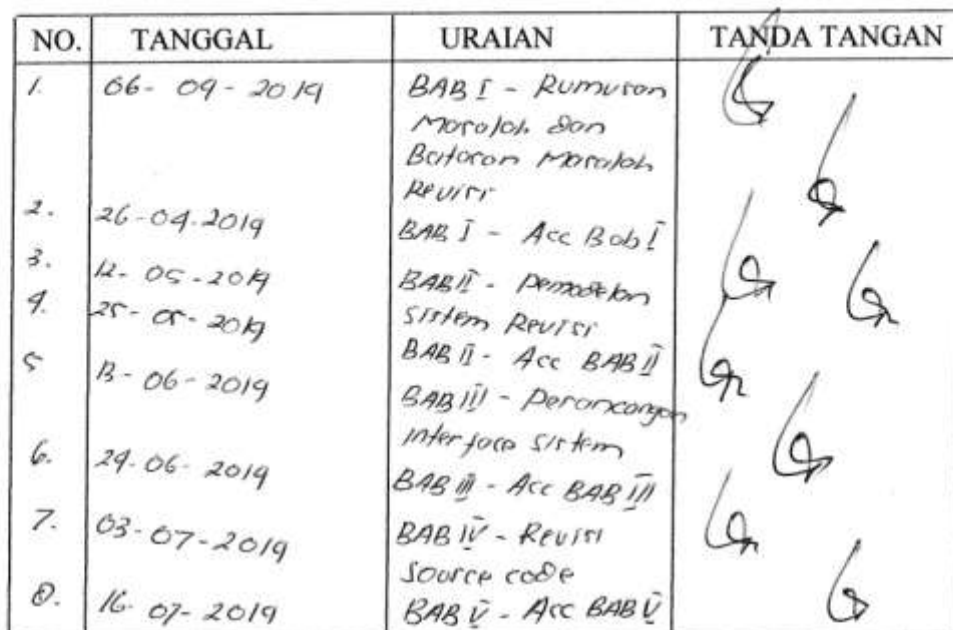 NO. TANGGAL URAIAN TANDA TANGAN
1. 06-09-2019 BAB I - Rumusan
Masalah dan
Batasan Masalah
Revisi
2. 26-04-2019 BAB I - Acc Bab I
3. 12-05-2019 BAB II - Pemodelan
Sistem Revisi
4. 25-05-2019 BAB II - Acc BAB II
5 13-06-2019 BAB III - Perancangan
interface sistem
6. 24-06-2019 BAB III - Acc BAB III
7. 03-07-2019 BAB IV - Revisi
Source code
8. 16-07-2019 BAB V - Acc BAB V